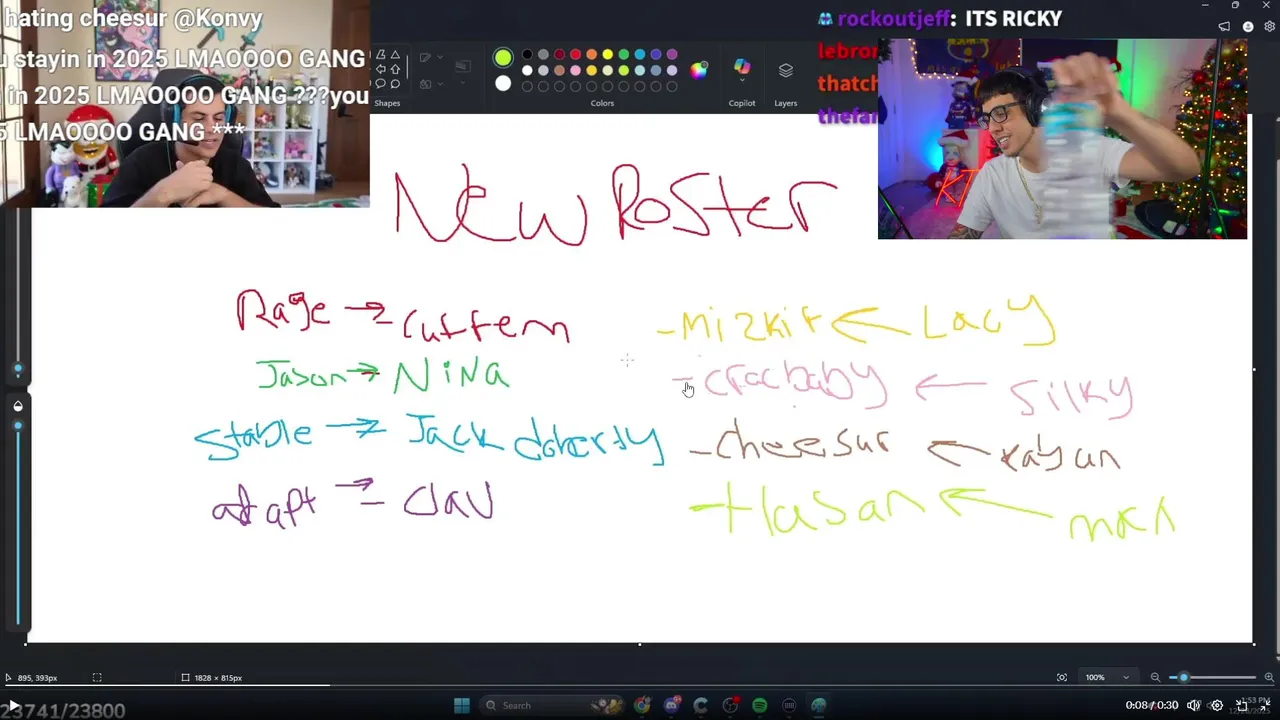 hating cheesur @Konvy
u stayin in 2025 LMAOOOO GANG
in 2025 LMAOOOO GANG ???you
5 LMAOOOO GANG ***
rockoutjeff: ITS RICKY
lebron
thatch
thefan
Shapes
Colors
Copilot
Layers
New Roster
Rage → - Cuffem
- Mizkif ← Lacy
Jason → Nina
- cracbaby ← Silky
Stable → Jack doherty
- Cheesur ← rayun
adapt → - Clav
- Hasan ← mkn
895, 393px
1828 × 815px
100%
Search
1:53 PM
23741/23800
0:08 / 0:30